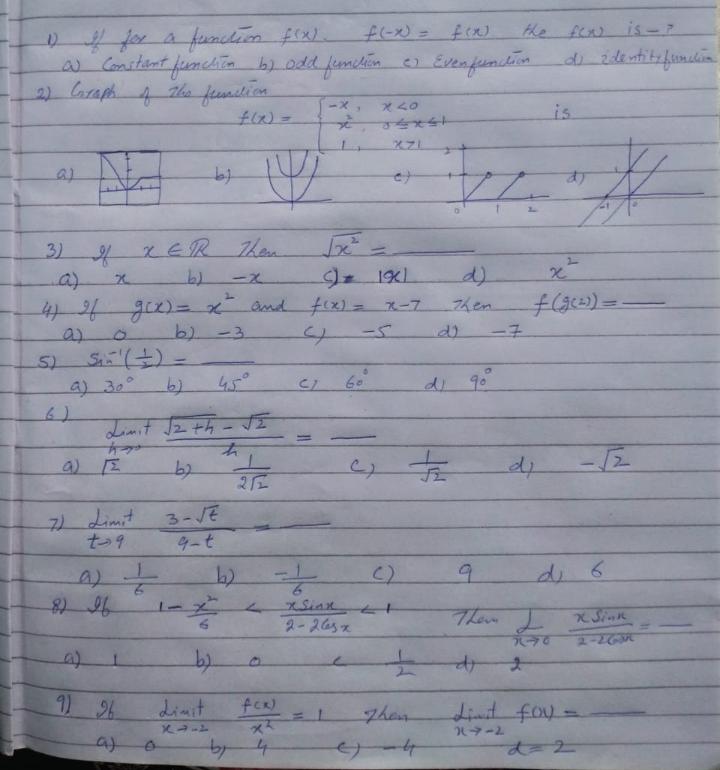 1) If for a function f(x). f(-x) = f(x) the f(x) is - ?
a) Constant function b) odd function c) Even function d) identity function
2) Graph of the function
f(x) = { -x, x<0
x², 0≤x≤1 is
1, x>1
a) b) c) 2 1 0 1 2 d) 1 -1 0
3) If x ∈ ℝ Then √x² = ____
a) x b) -x c) |x| d) x²
4) If g(x) = x² and f(x) = x-7 Then f(g(2)) = ____
a) 0 b) -3 c) -5 d) -7
5) Sin⁻¹(1/2) = ____
a) 30° b) 45° c) 60° d) 90°
6)
Limit h→0 (√2+h - √2)/h = ____
a) √2 b) 1/2√2 c) 1/√2 d) -√2
7) Limit t→9 (3-√t)/(9-t) = ____
a) 1/6 b) -1/6 c) 9 d) 6
8) If 1 - x²/6 < x Sinx/(2-2Cosx) < 1 Then L x→0 x Sinx/(2-2Cosx) = ____
a) 1 b) 0 c 1/2 d) 2
9) If Limit x→-2 f(x)/x² = 1 Then Limit x→-2 f(x) = ____
a) 0 b) 4 c) -4 d = 2